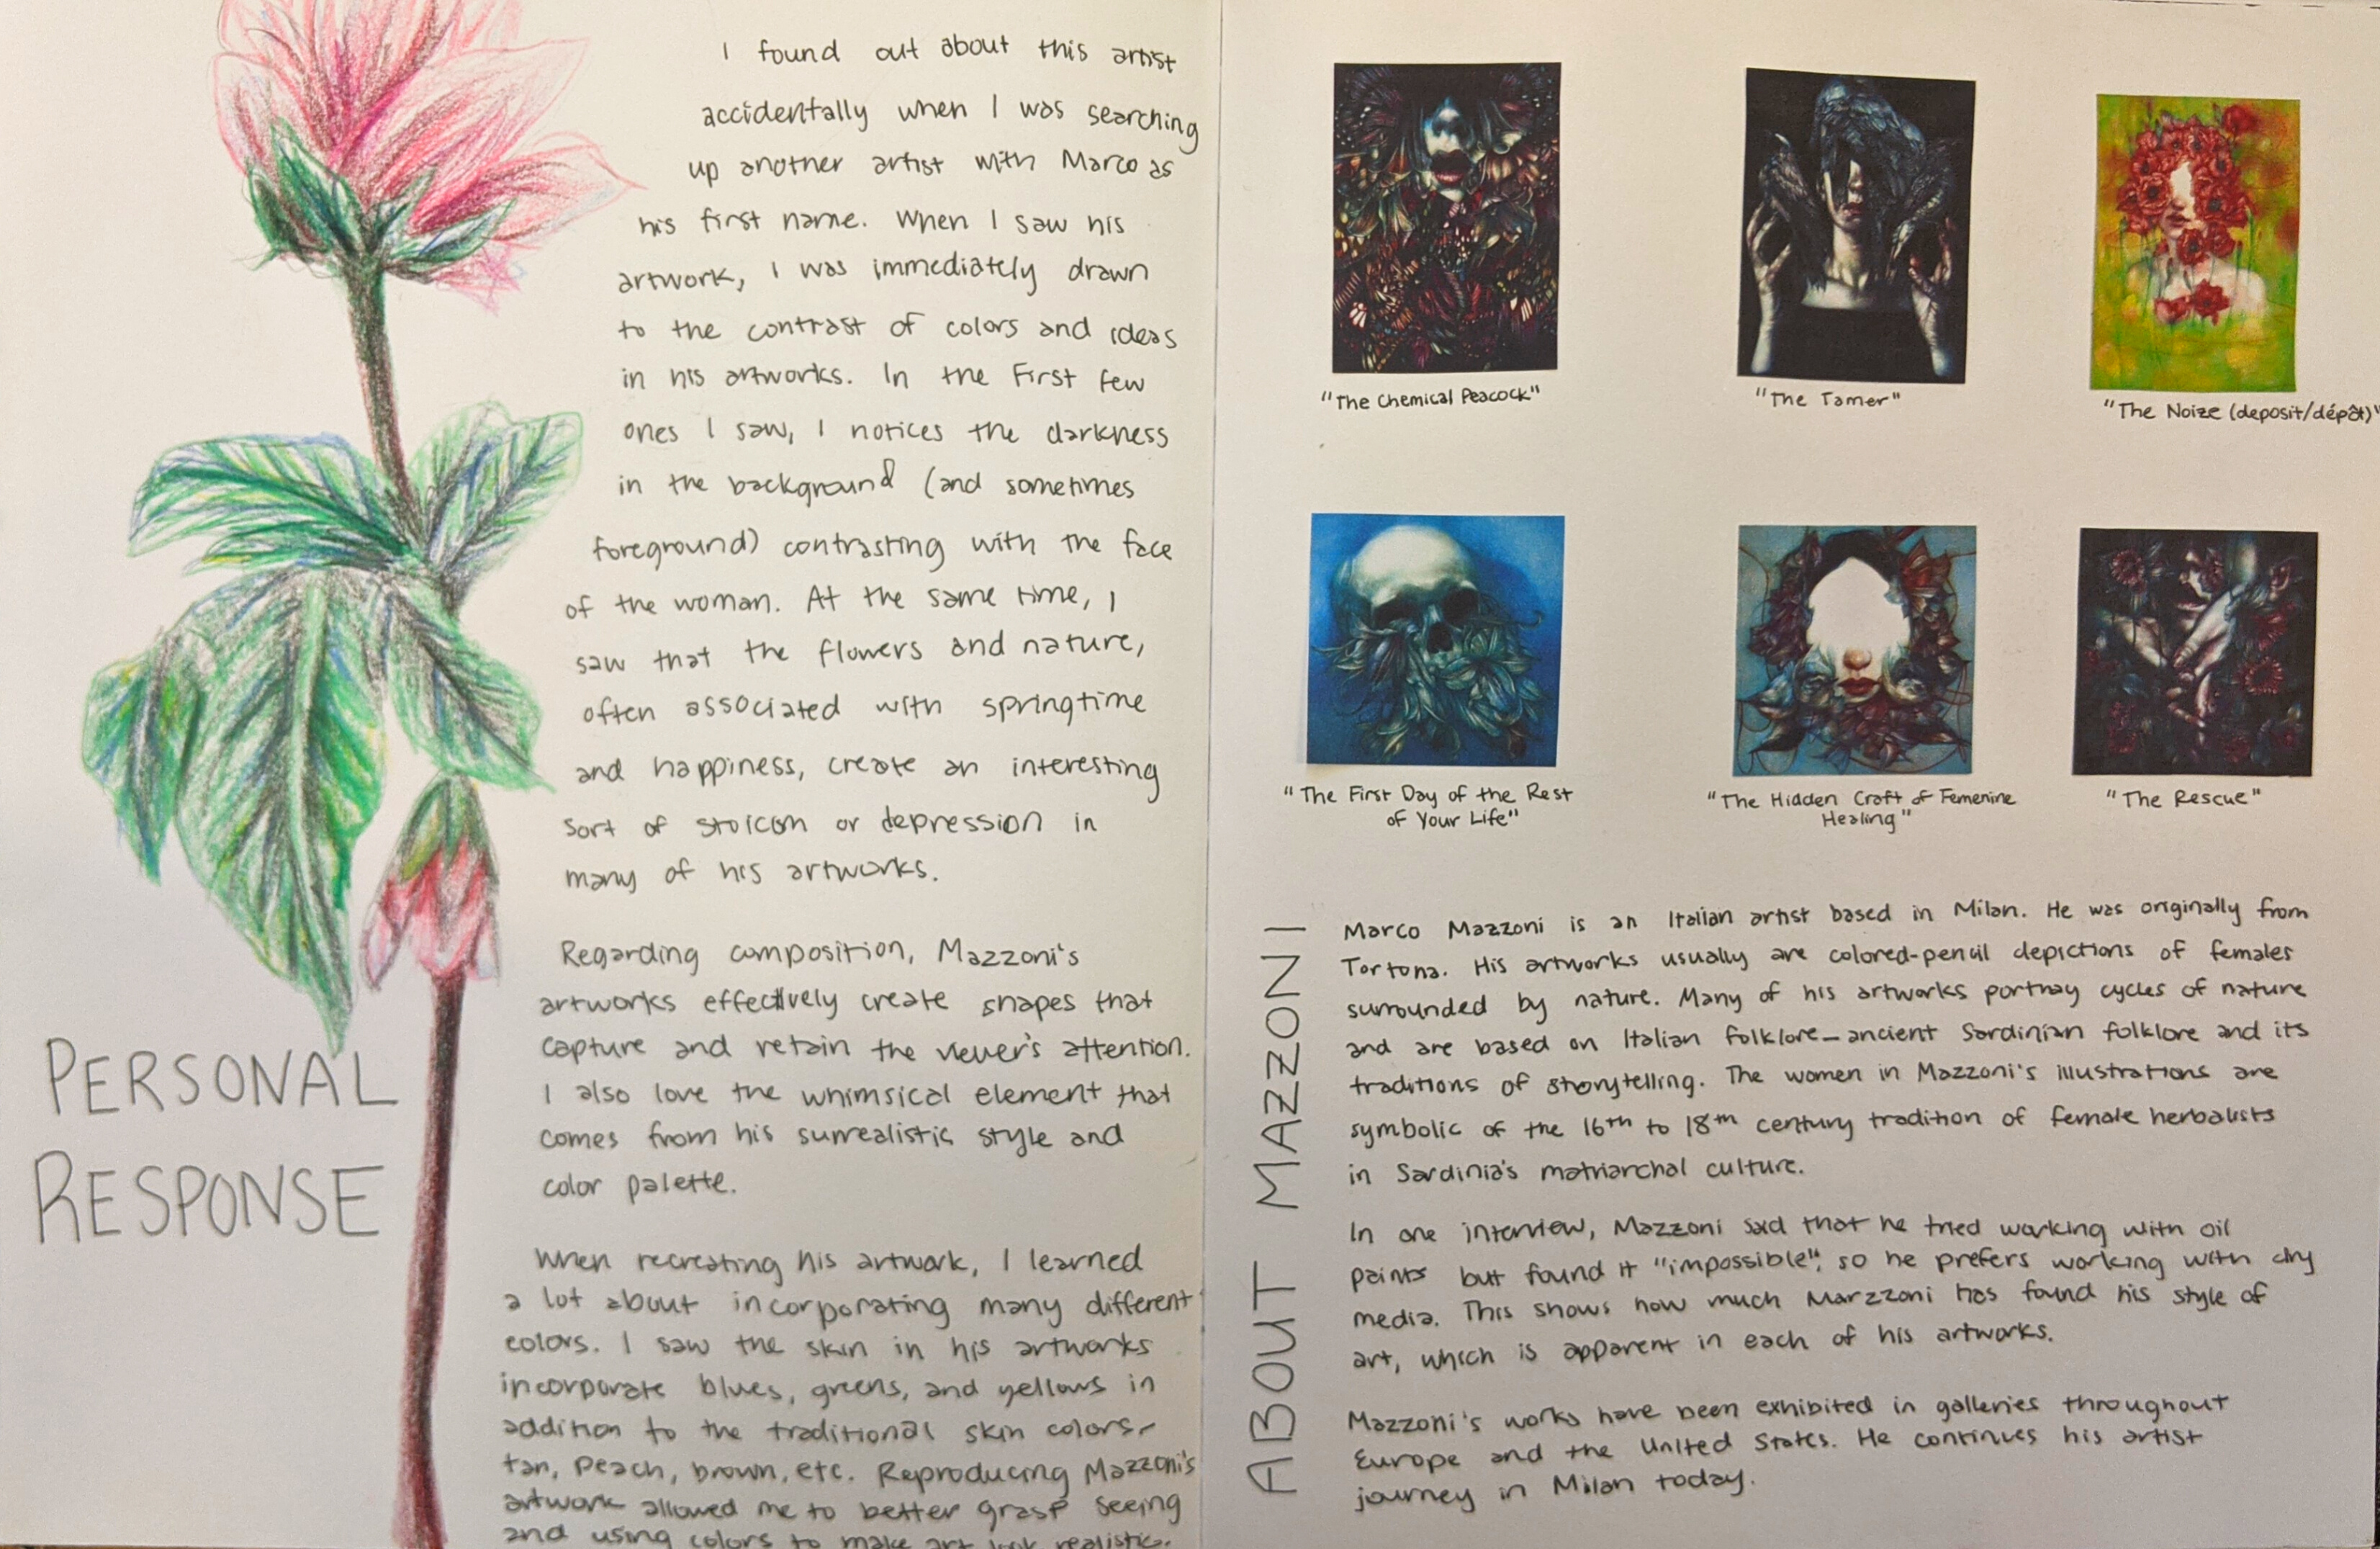 I found out about this artist
accidentally when I was searching
up another artist with Marco as
his first name. When I saw his
artwork, I was immediately drawn
to the contrast of colors and ideas
in his artworks. In the First few
ones I saw, I notices the darkness
in the background (and sometimes
foreground) contrasting with the face
of the woman. At the same time, I
saw that the flowers and nature,
often associated with springtime
and happiness, create an interesting
sort of stoicism or depression in
many of his artworks.
Regarding composition, Mazzoni's
artworks effectively create shapes that
capture and retain the viewer's attention.
I also love the whimsical element that
comes from his surrealistic style and
color palette.
When recreating his artwork, I learned
a lot about incorporating many different
colors. I saw the skin in his artworks
incorporate blues, greens, and yellows in
addition to the traditional skin colors-
tan, peach, brown, etc. Reproducing Mazzoni's
artwork allowed me to better grasp seeing
and using colors to make art look realistic.
PERSONAL
RESPONSE
"The Chemical Peacock"
"The Tamer"
"The Noize (deposit/dépôt)"
"The First Day of the Rest
of Your Life"
"The Hidden Craft of Femenine
Healing"
"The Rescue"
ABOUT MAZZONI
Marco Mazzoni is an Italian artist based in Milan. He was originally from
Tortona. His artworks usually are colored-pencil depictions of females
surrounded by nature. Many of his artworks portray cycles of nature
and are based on Italian folklore—ancient Sardinian folklore and its
traditions of storytelling. The women in Mazzoni's illustrations are
symbolic of the 16th to 18th century tradition of female herbalists
in Sardinia's matriarchal culture.
In one interview, Mazzoni said that he tried working with oil
paints but found it "impossible", so he prefers working with dry
media. This shows how much Marzzoni has found his style of
art, which is apparent in each of his artworks.
Mazzoni's works have been exhibited in galleries throughout
Europe and the United States. He continues his artist
journey in Milan today.